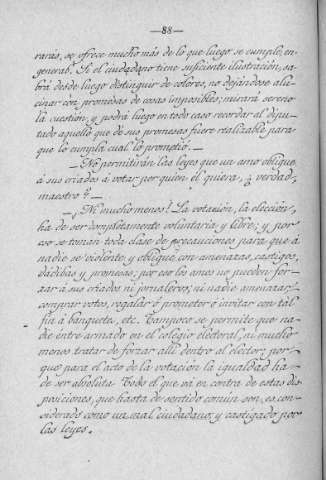 —88—
raras, se ofrece mucho más de lo que luego se cumple, en-
general. Si el ciudadano tiene suficiente ilustración, sa-
brá desde luego distinguir de colores, no dejándose alu-
cinar con promesas de cosas imposibles; mirará sereno
la cuestión, y podrá luego en todo caso recordar al dipu-
tado aquello que de sus promesas fuere realizable para
que lo cumpla cual lo prometió. —
— No permitirán las leyes que un amo obligue
á sus criados á votar por quien él quiera, ¿verdad,
maestro? —
— ¡Ni mucho menos! La votación, la elección,
ha de ser completamente voluntaria y libre; y por
eso se toman toda clase de precauciones para que á
nadie se violente y obligue con amenazas, castigos,
dádibas y promesas; por eso los amos no pueden for-
zar á sus criados ni jornaleros; ni nadie amenazar,
comprar votos, regalar ó prometer é invitar con tal
fin á banquete, etc. Tampoco se permite que na-
die entre armado en el colegio electoral, ni mucho
menos tratar de forzar allí dentro al elector; por-
que para el acto de la votación la igualdad ha
de ser absoluta. Todo el que vá en contra de estas dis-
posiciones, que hasta de sentido común son, es con-
siderado como un mal ciudadano, y castigado por
las leyes.